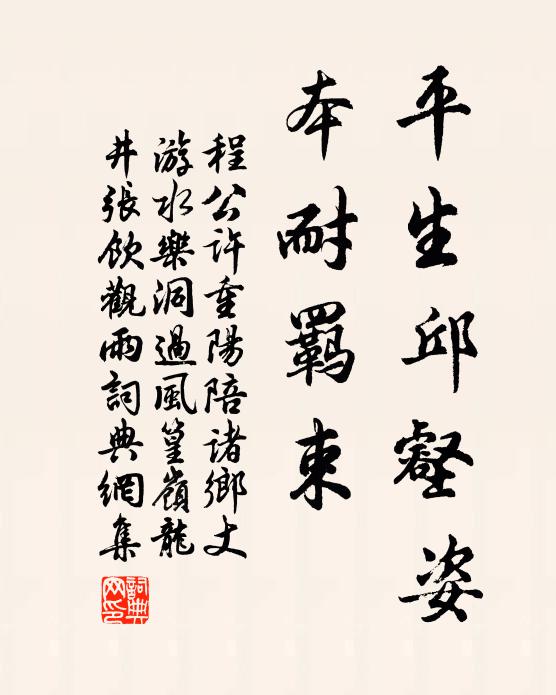 平生邱壑姿
夲耐羈束
程公許重陽陪诸鄉丈
游水樂洞過風篁嶺龍
井張飲觀雨詞典網集
詞典
网印